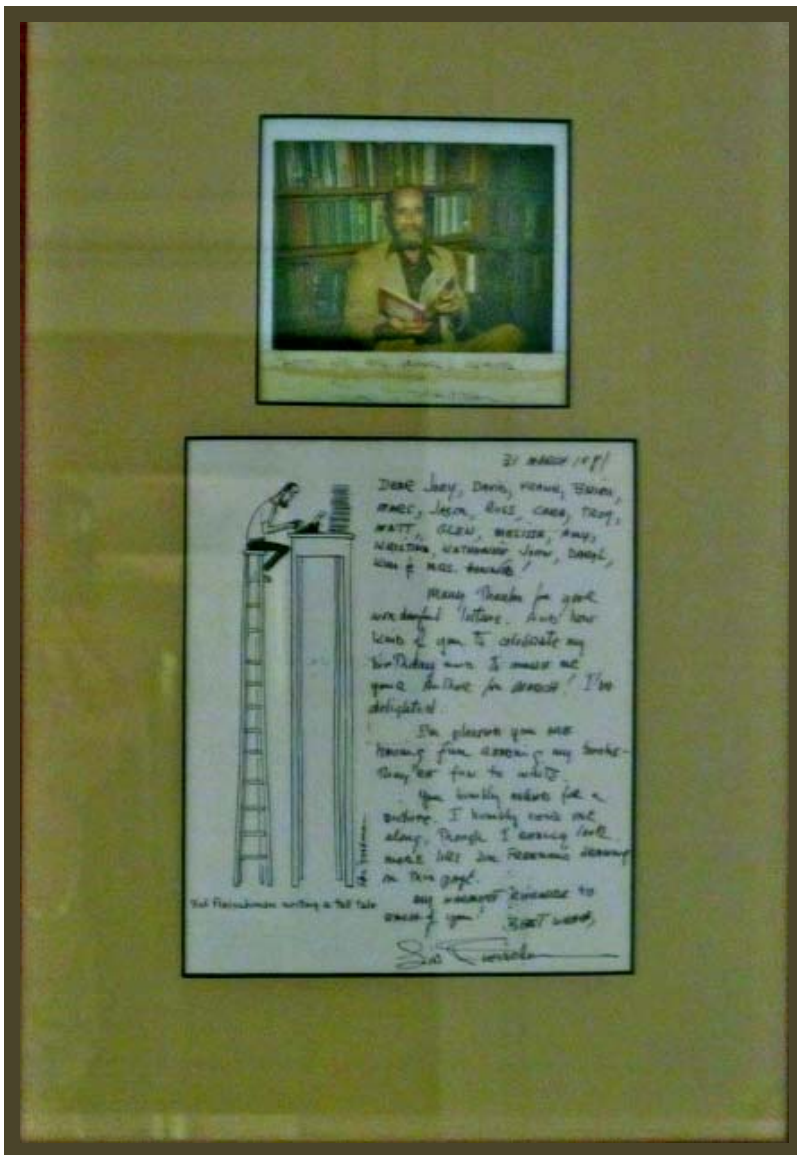 31 MARCH
DEAR JOEY, DAVID, FRANK, BRIAN,
MARC, JASON, RUSS, CARA, TROY,
MATT, GLEN, MELISSA, AMY,
KRISTINA, KATHERINE, JOHN, DARYL,
KIM & MRS.
MANY THANKS for your
wonderful letters. AND how
kind of you to celebrate my
birthday AND to make me
your AUTHOR for MARCH! I'm
delighted.
I'm pleased you ARE
having fun reading my books –
They're fun to write.
You kindly asked for a
picture. I kindly send one
along, Though I really look
more like Jim Freeman's drawing
on this page.
My warmest regards to
each of you!
BEST WISHES,
Sid Fleischman
Sid Fleischman writing a tall tale